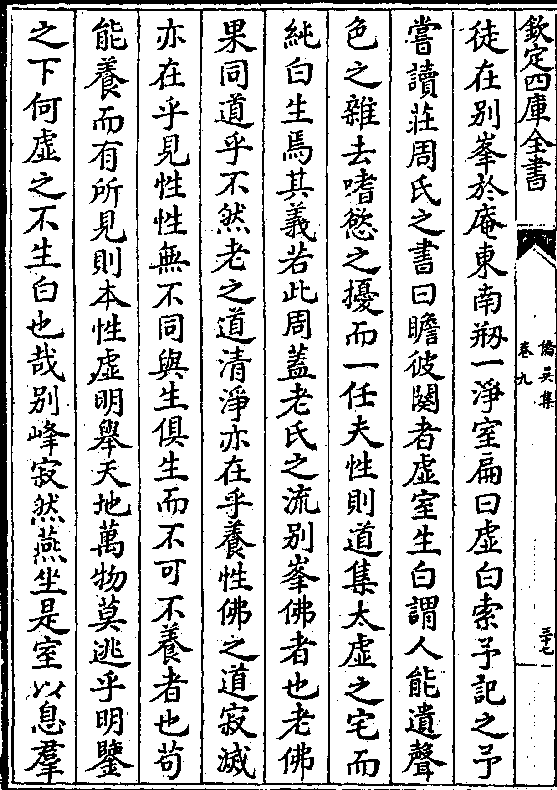 欽定四庫全書
僑吳集
卷九
三十七
徒在别峯於庵東南剏一淨室扁曰虛白索予記之予
嘗讀莊周氏之書曰瞻彼闋者虛室生白謂人能遺聲
色之雜去嗜慾之擾而一任夫性則道集太虛之宅而
純白生焉其義若此周蓋老氏之流别峯佛者也老佛
果同道乎不然老之道清淨亦在乎養性佛之道寂滅
亦在乎見性性無不同與生俱生而不可不養者也苟
能養而有所見則本性虛明舉天地萬物莫逃乎明鑒
之下何虛之不生白也哉别峰寂然燕坐是室以息羣